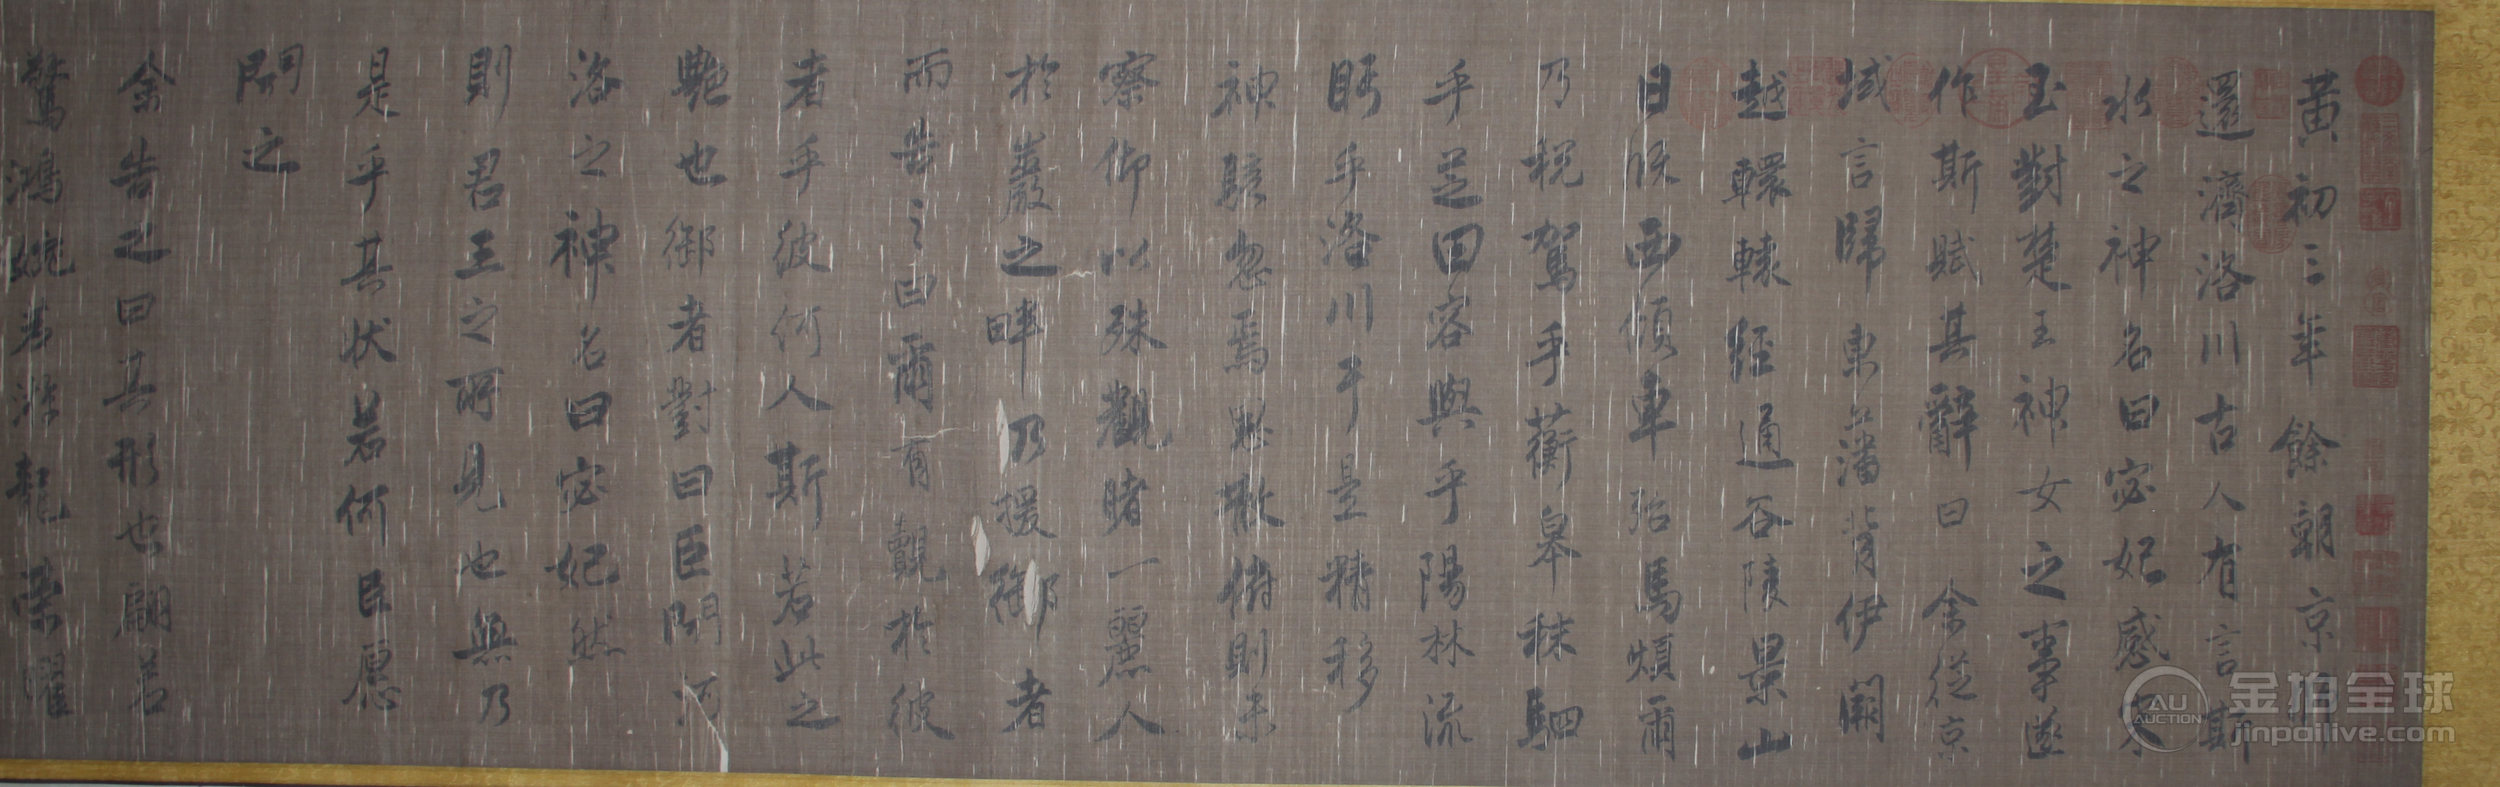 黃初三年餘朝京師
還濟洛川古人有言斯
水之神名曰宓妃感宋
玉對楚王神女之事遂
作斯賦其辭曰余從京
域言歸東藩背伊闕
越轘轅經通谷陵景山
日既西傾車殆馬煩爾
乃稅駕乎蘅皋秣駟
乎芝田容與乎陽林流
眄乎洛川于是精移
神駭忽焉思散俯則未
察仰以殊觀睹一麗人
於巖之畔乃援御者
而告之曰爾有覿於彼
者乎彼何人斯若此之
艷也御者對曰臣聞河
洛之神名曰宓妃然
則君王之所見也無乃
是乎其狀若何臣愿
聞之
余告之曰其形也翩若
驚鴻婉若游龍榮曜
AU
AUCTION
金拍全球
jinpailive.com